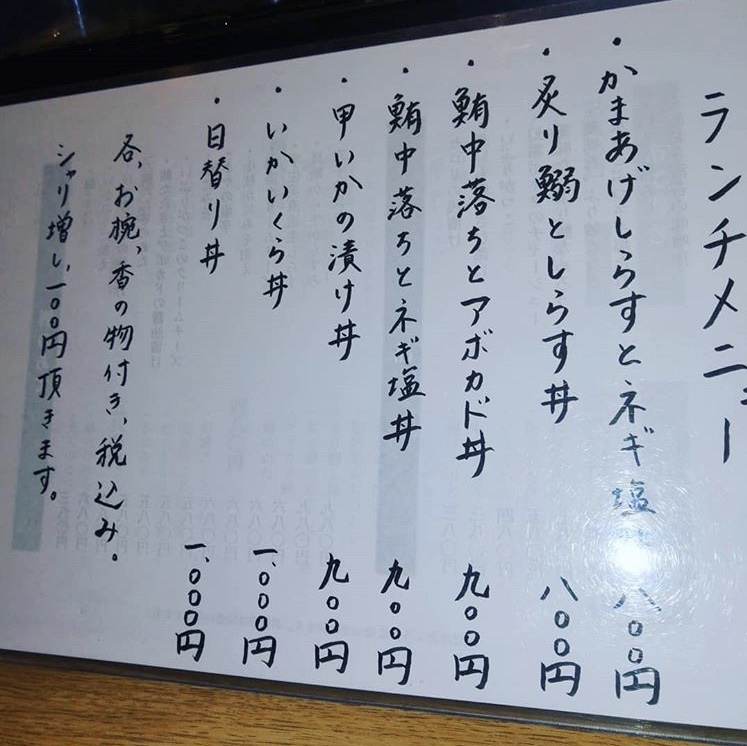 ランチメニュー
・かまあげしらすとネギ塩丼 八〇〇円
・炙り鰯としらす丼 八〇〇円
・鮪中落ちとアボカド丼 九〇〇円
・鮪中落ちとネギ塩丼 九〇〇円
・甲いかの漬け丼 九〇〇円
・いかいくら丼 一、〇〇〇円
・日替り丼 一、〇〇〇円
各、お椀、香の物付き、税込み。
シャリ増し、一〇〇円頂きます。